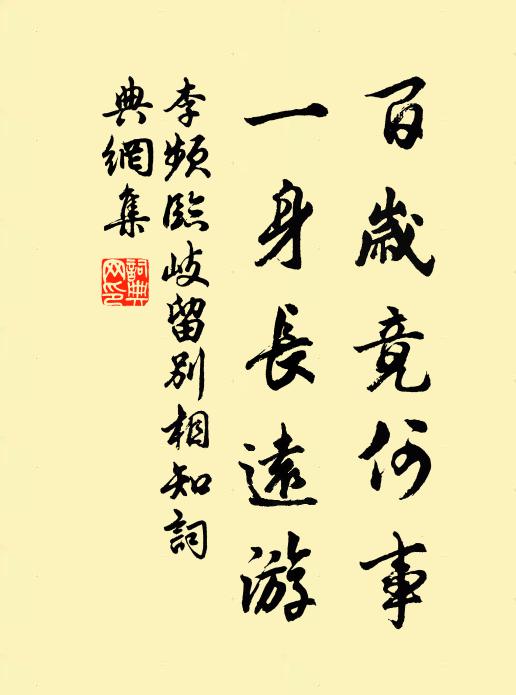 百歲竟何事
一身長遠游
李頻臨岐留別相知詞
典網集
詞典網印